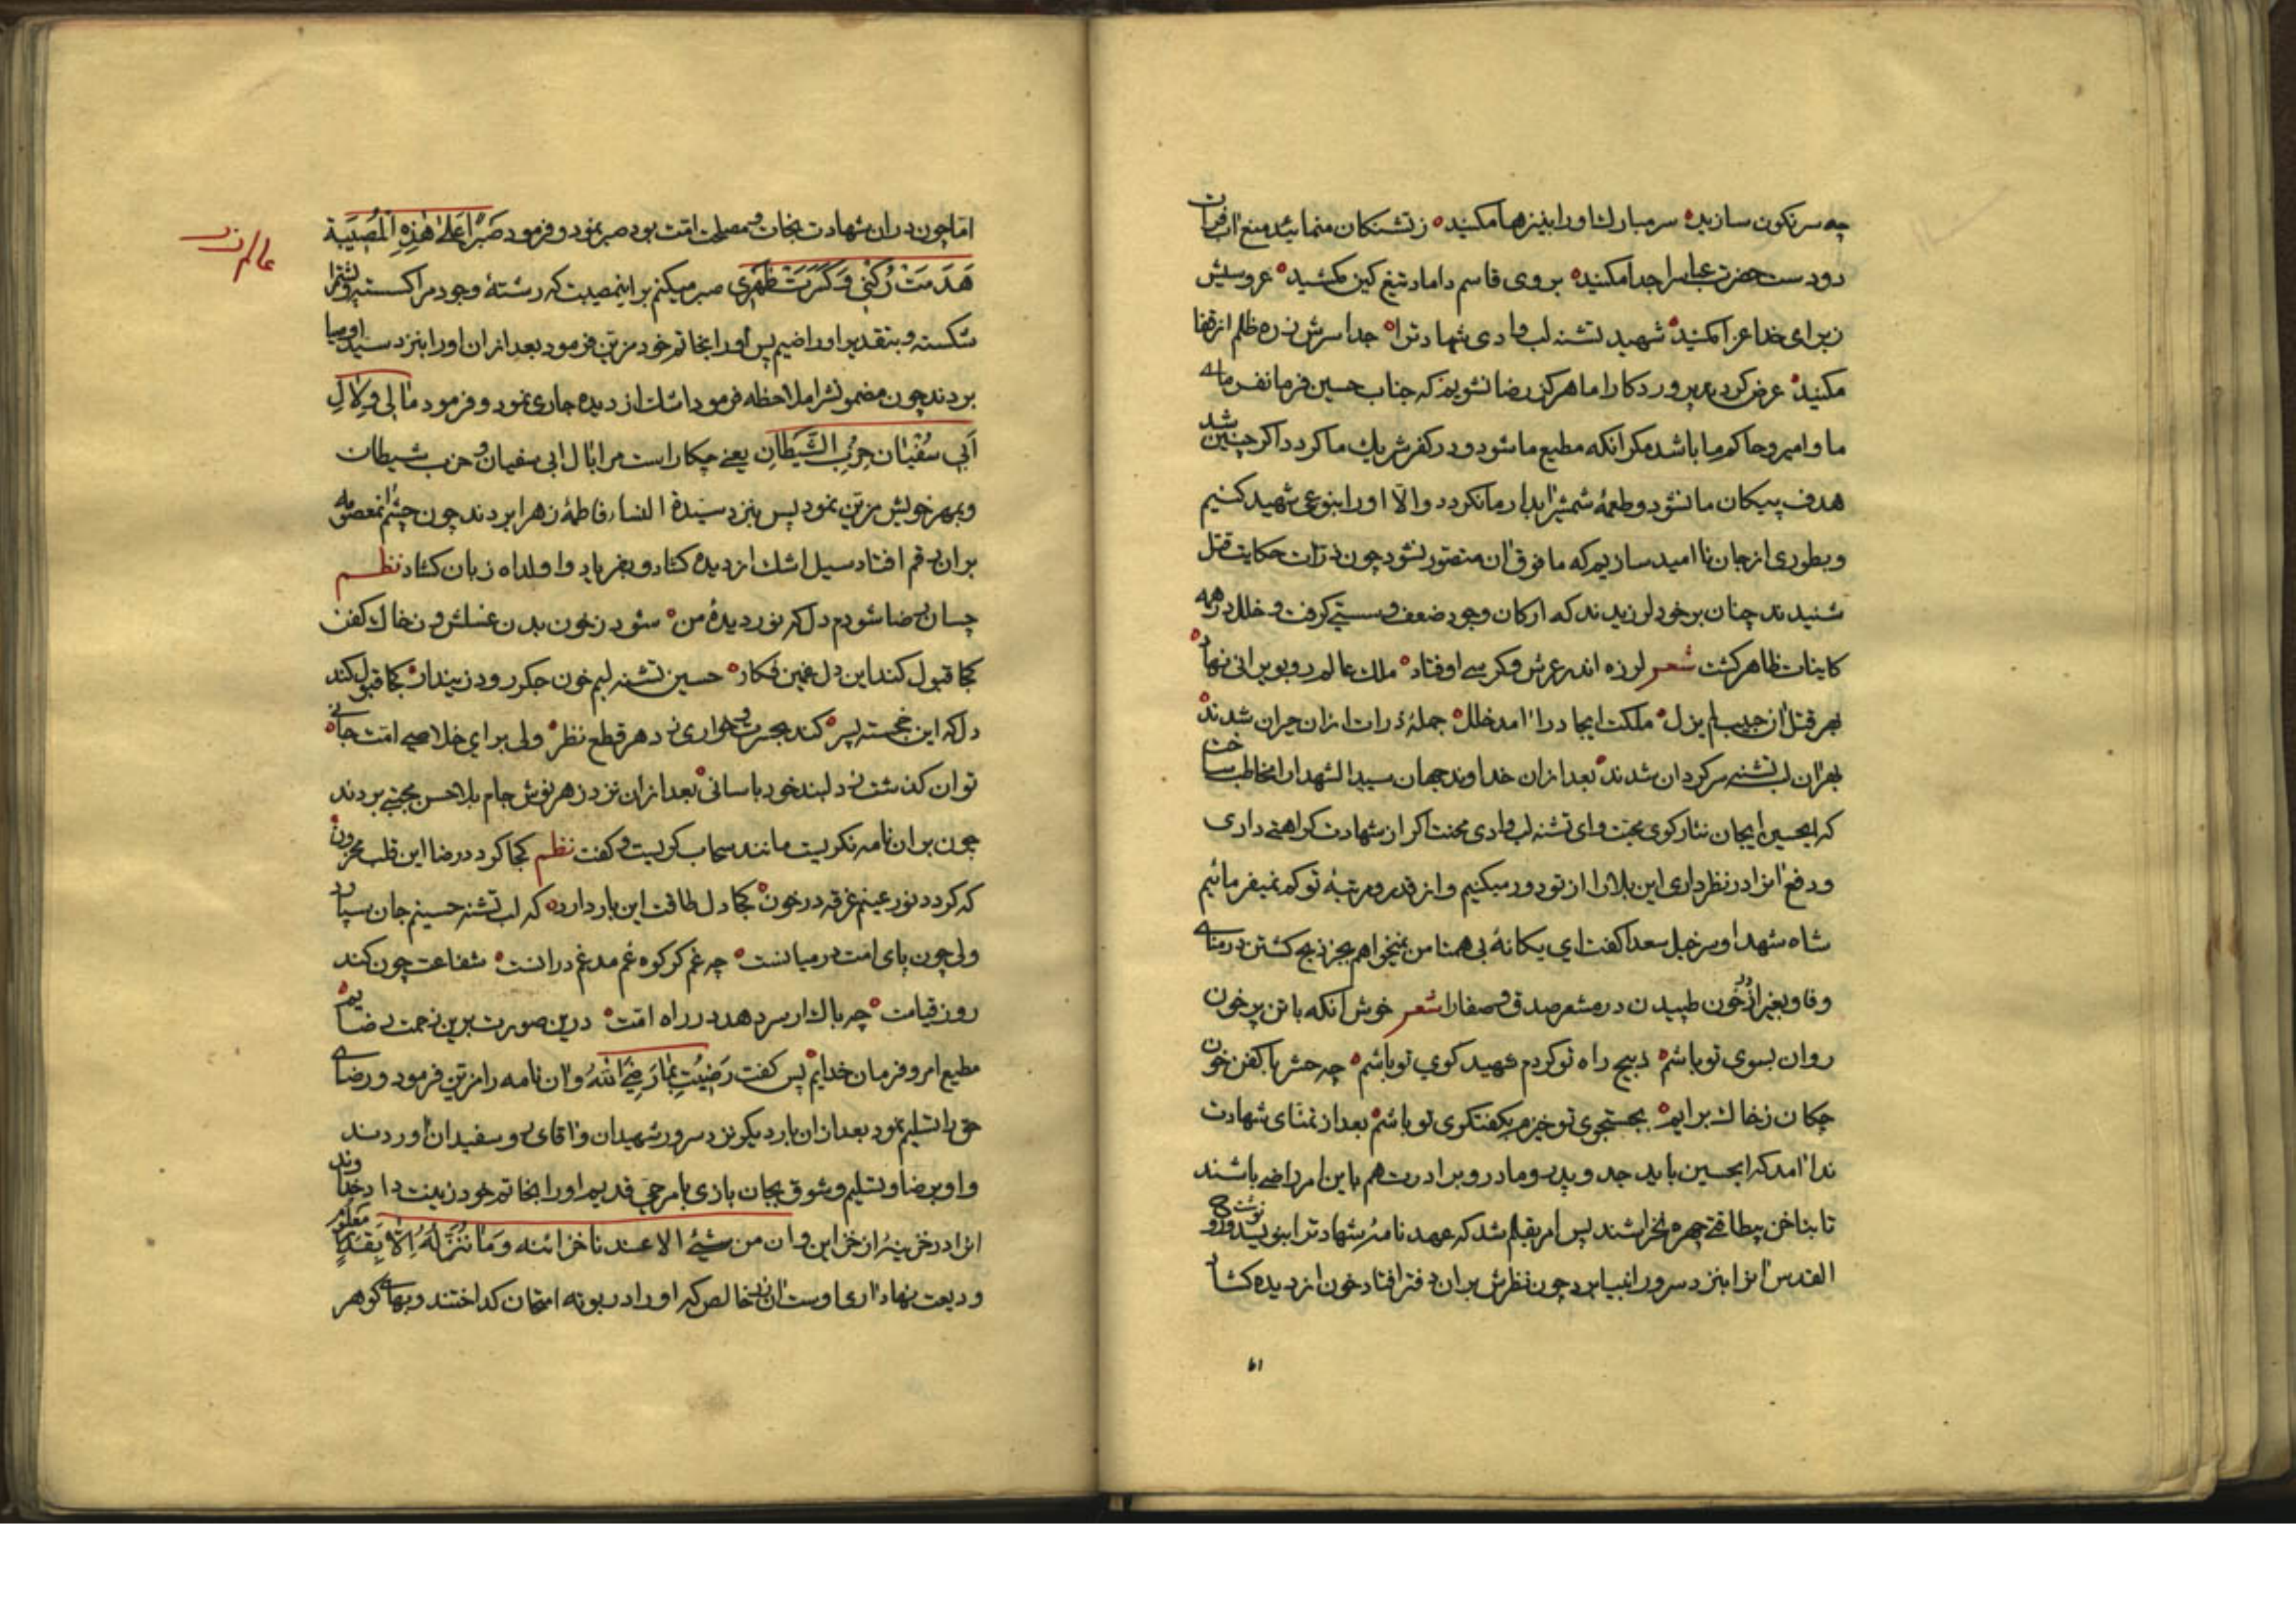 چه سرنکون سازید سر مبارک اورا بنیزها مکنید زتشنکان منمائید منع اب فرات
دو دست حضرت عباسرا جدا مکنید بروی قاسم داماد تیغ کین مکشید عروسیش
زبرای خدا عزا مکنید شهید تشنه لب وادی شهادترا جدا سرش زره ظلم از قفا
مکنید عرض کردند پروردکارا ما هرکز رضا نشویم که جناب حسین فرمانفرمای
ما و امیر و حاکم ما باشد مکر انکه مطیع ما شود و در کفر شریک ما کردد اکر چنین شد
هدف پیکان ما نشود و طعمهٔ شمشیر ابدار ما نکردد والا اورا بنوعی شهید کنیم
و بطوری از جان ناامید سازیم که ما فوق ان متصور نشود چون ذرات حکایت قتل
شنیدند چنان برخود لرزیدند که ارکان وجود ضعف و سستی کرفت و خلل در همه
کاینات ظاهر کشت شعر لرزه اندر عرش و کرسی اوفتاد ملک عالم رو بویرانی نهاد
بهر قتل ان حبیب لم یزل مملکت ایجاد را امد خلل جملهٔ ذرات ازان حیران شدند
بهر ان لب تشنه سرکردان شدند بعد ازان خداوند جهان سیدالشهدا را مخاطب ساخت
که ایحسین ایجان نثار کوی محبت وای تشنه لب وادی محنت اکر از شهادت کراهتی داری
و دفع انرا در نظر داری این بلا را از تو دور میکنیم و از قدر و مرتبهٔ تو کم نمیفرمائیم
شاه شهدا و سرخیل سعدا کفت ای یکانهٔ بی همتا من نمیخواهم بجز ذبح کشتن در منای
وفا و بغیر از در خون طپیدن در مشعر صدق و صفا را شعر خوش انکه با تن پر خون
روان بسوی تو باشم ذبیح راه تو کردم شهید کوی تو باشم چه حشر با کفن خون
چکان زخاک برایم بجستجوی تو خیزم بکفتکوی تو باشم بعد از تمنای شهادت
ندا امد که ایحسین باید جد و پدر و مادر و برادرت هم باین امر راضی باشند
تا بناخن بیطاقتی چهره نخراشند پس امر بقلم شد که عهد نامهٔ شهادترا بنویسد نوشت و روح
القدس انرا بنزد سرور انبیا برد چون نظرش بران دفتر افتاد خون از دیده کشاد
۶۱
عالم زر
اما چون دران شهادت نجات و مصلحت امت بود صبر نمود و فرمود صَبْرًا عَلیٰ هٰذِهِ الْمُصیبَة
هَدَمَتْ رُکْنی وَکَسَرَتْ ظَهْری صبر میکنم براینمصیبت که رشتهٔ وجود مرا کسسته و پشتمرا
شکسته و بتقدیر او راضیم پس اورا بخاتم خود مزین فرمود بعد ازان اورا بنزد سید اوصیا
بردند چون مضمونشرا ملاحظه فرمود اشک از دیده جاری نمود و فرمود مٰا لی وَلِاٰلِ
اَبی سُفْیٰان حِزْبِ الشَّیْطانِ یعنی چکار است مرا باال ابی سفیان و حزب شیطان
و بمهر خویش مزین نمود پس بنزد سیّدة النساء فاطمهٔ زهرا بردند چون چشم انمعصومه
بران رقم افتاد سیل اشک از دیده کشاد و بفریاد واولداه زبان کشاد نظم
چسان رضا شودم دل که نور دیدهٔ من شود زخون بدن غسلش و زخاک کفن
کجا قبول کند این دل غمین فکار حسین تشنه لبم خون جکر رود زینداز کجا قبول کند
دل که این خجسته پسر کند بحسرت و خواری ز دهر قطع نظر ولی برای خلاصی امت جانی
توان کذشت ز دلبند خود باسانی بعد ازان نزد زهر نوش جام بلا حسن مجتبی بردند
چون بران نامه نکریست مانند سحاب کریست و کفت نظم کجا کردد رضا این قلب محزون
که کردد نور عینم غرقه در خون کجا دل طاقت این بار دارد که لب تشنه حسینم جان سپارد
ولی چون پای امت در میانست چه غم کر کوه غم مدغم درانست شفاعت چون کند
روز قیامت چه باک ار سر دهد در راه امت درین صورت برین زحمت رضایم
مطیع امر و فرمان خدایم پس کفت رَضیتُ بِمٰا رَضِیَ اللّٰهُ وان نامه را مزین فرمود و رضای
حق را تسلیم نمود بعد ازان بار دیکر نزد سرور شهیدان و اقای رو سفیدان اوردند
و او برضا و تسلیم و شوق بجان بازی بامر حی قدیم اورا بخاتم خود زینت داد خداوند
انرا در خزینهٔ از خزاین وان من شیئ الا عندنا خزائنه وَمٰا نُنَزِّلُهُ اِلّٰا بِقَدَرٍ مَعْلُومٍ
ودیعت نهاد اری اوست ان زر خالص که اورا در بوته امتحان کداختند و بهای کوهر